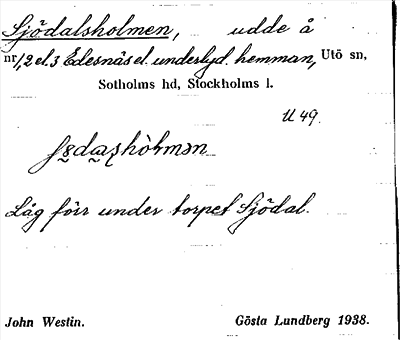 Sjödalsholmen, udde å
nr 1, 2 el. 3 Edesnäs el. underlyd. hemman, Utö sn,
Sotholms hd, Stockholms l.
U 49.
Låg förr under torpet Sjödal.
John Westin. Gösta Lundberg 1938.